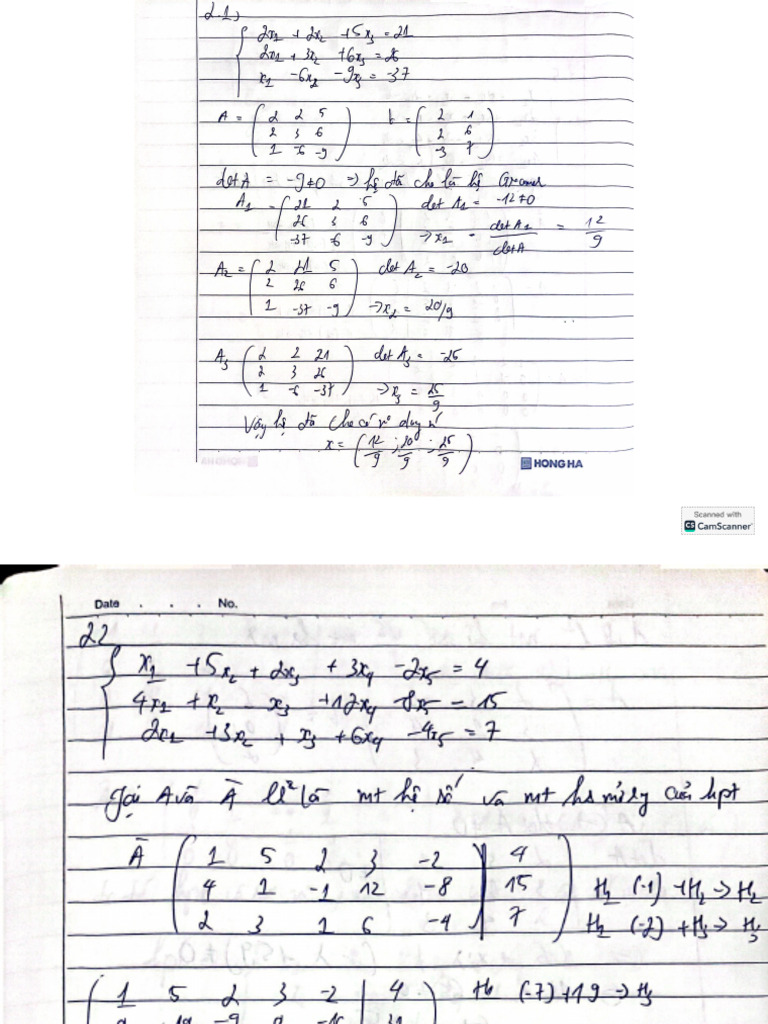 2.1)
2x₁ + 2x₂ + 5x₃ = 21
2x₁ + 3x₂ + 6x₃ = 26
x₁ - 6x₂ - 9x₃ = 37
A = ( 2 2 5
2 3 6
1 -6 -9 )
b = ( 2 1
2 6
-3 7 )
det A = -9 ≠ 0 => hệ đã cho là hệ Cramer
A₁ = ( 21 2 5
26 3 6
-37 -6 -9 )
det A₁ = -12 ≠ 0
→ x₁ = det A₁ / det A = 12/9
A₂ = ( 2 21 5
2 26 6
1 -37 -9 )
det A₂ = -20
→ x₂ = 20/9
A₃ ( 2 2 21
2 3 26
1 -6 -37 )
det A₃ = -25
→ x₃ = 25/9
Vậy hệ đã cho có n° duy n'
x = ( 12/9 ; 20/9 ; 25/9 )
HONG HA
Scanned with
CS CamScanner
Date . . . No.
22
x₁ + 5x₂ + 2x₃ + 3x₄ - 2x₅ = 4
4x₁ + x₂ - x₃ + 12x₄ - 8x₅ = 15
2x₁ + 3x₂ + x₃ + 6x₄ - 4x₅ = 7
Gọi A và Ā là mt hệ số và mt hs mở rg của hpt
Ā ( 1 5 2 3 -2 | 4
4 1 -1 12 -8 | 15
2 3 1 6 -4 | 7 )
H₂ (-1) + H₂ → H₂
H₂ (-2) + H₃ → H₃
( 1 5 2 3 -2 | 4 )
(-7) + 19 → H₃